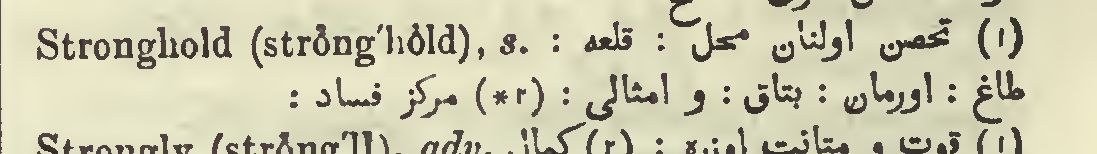 Stronghold (strŏng′hōld), s. : (۱) تحصن اولنان محل : قلعه :
طاغ : اورمان : بتاق : و امثالی : (۲*) مرکز فساد :
Strongly (strŏng′lĭ), adv. (۱) قوت و متانت اوزره : (۲) کمال